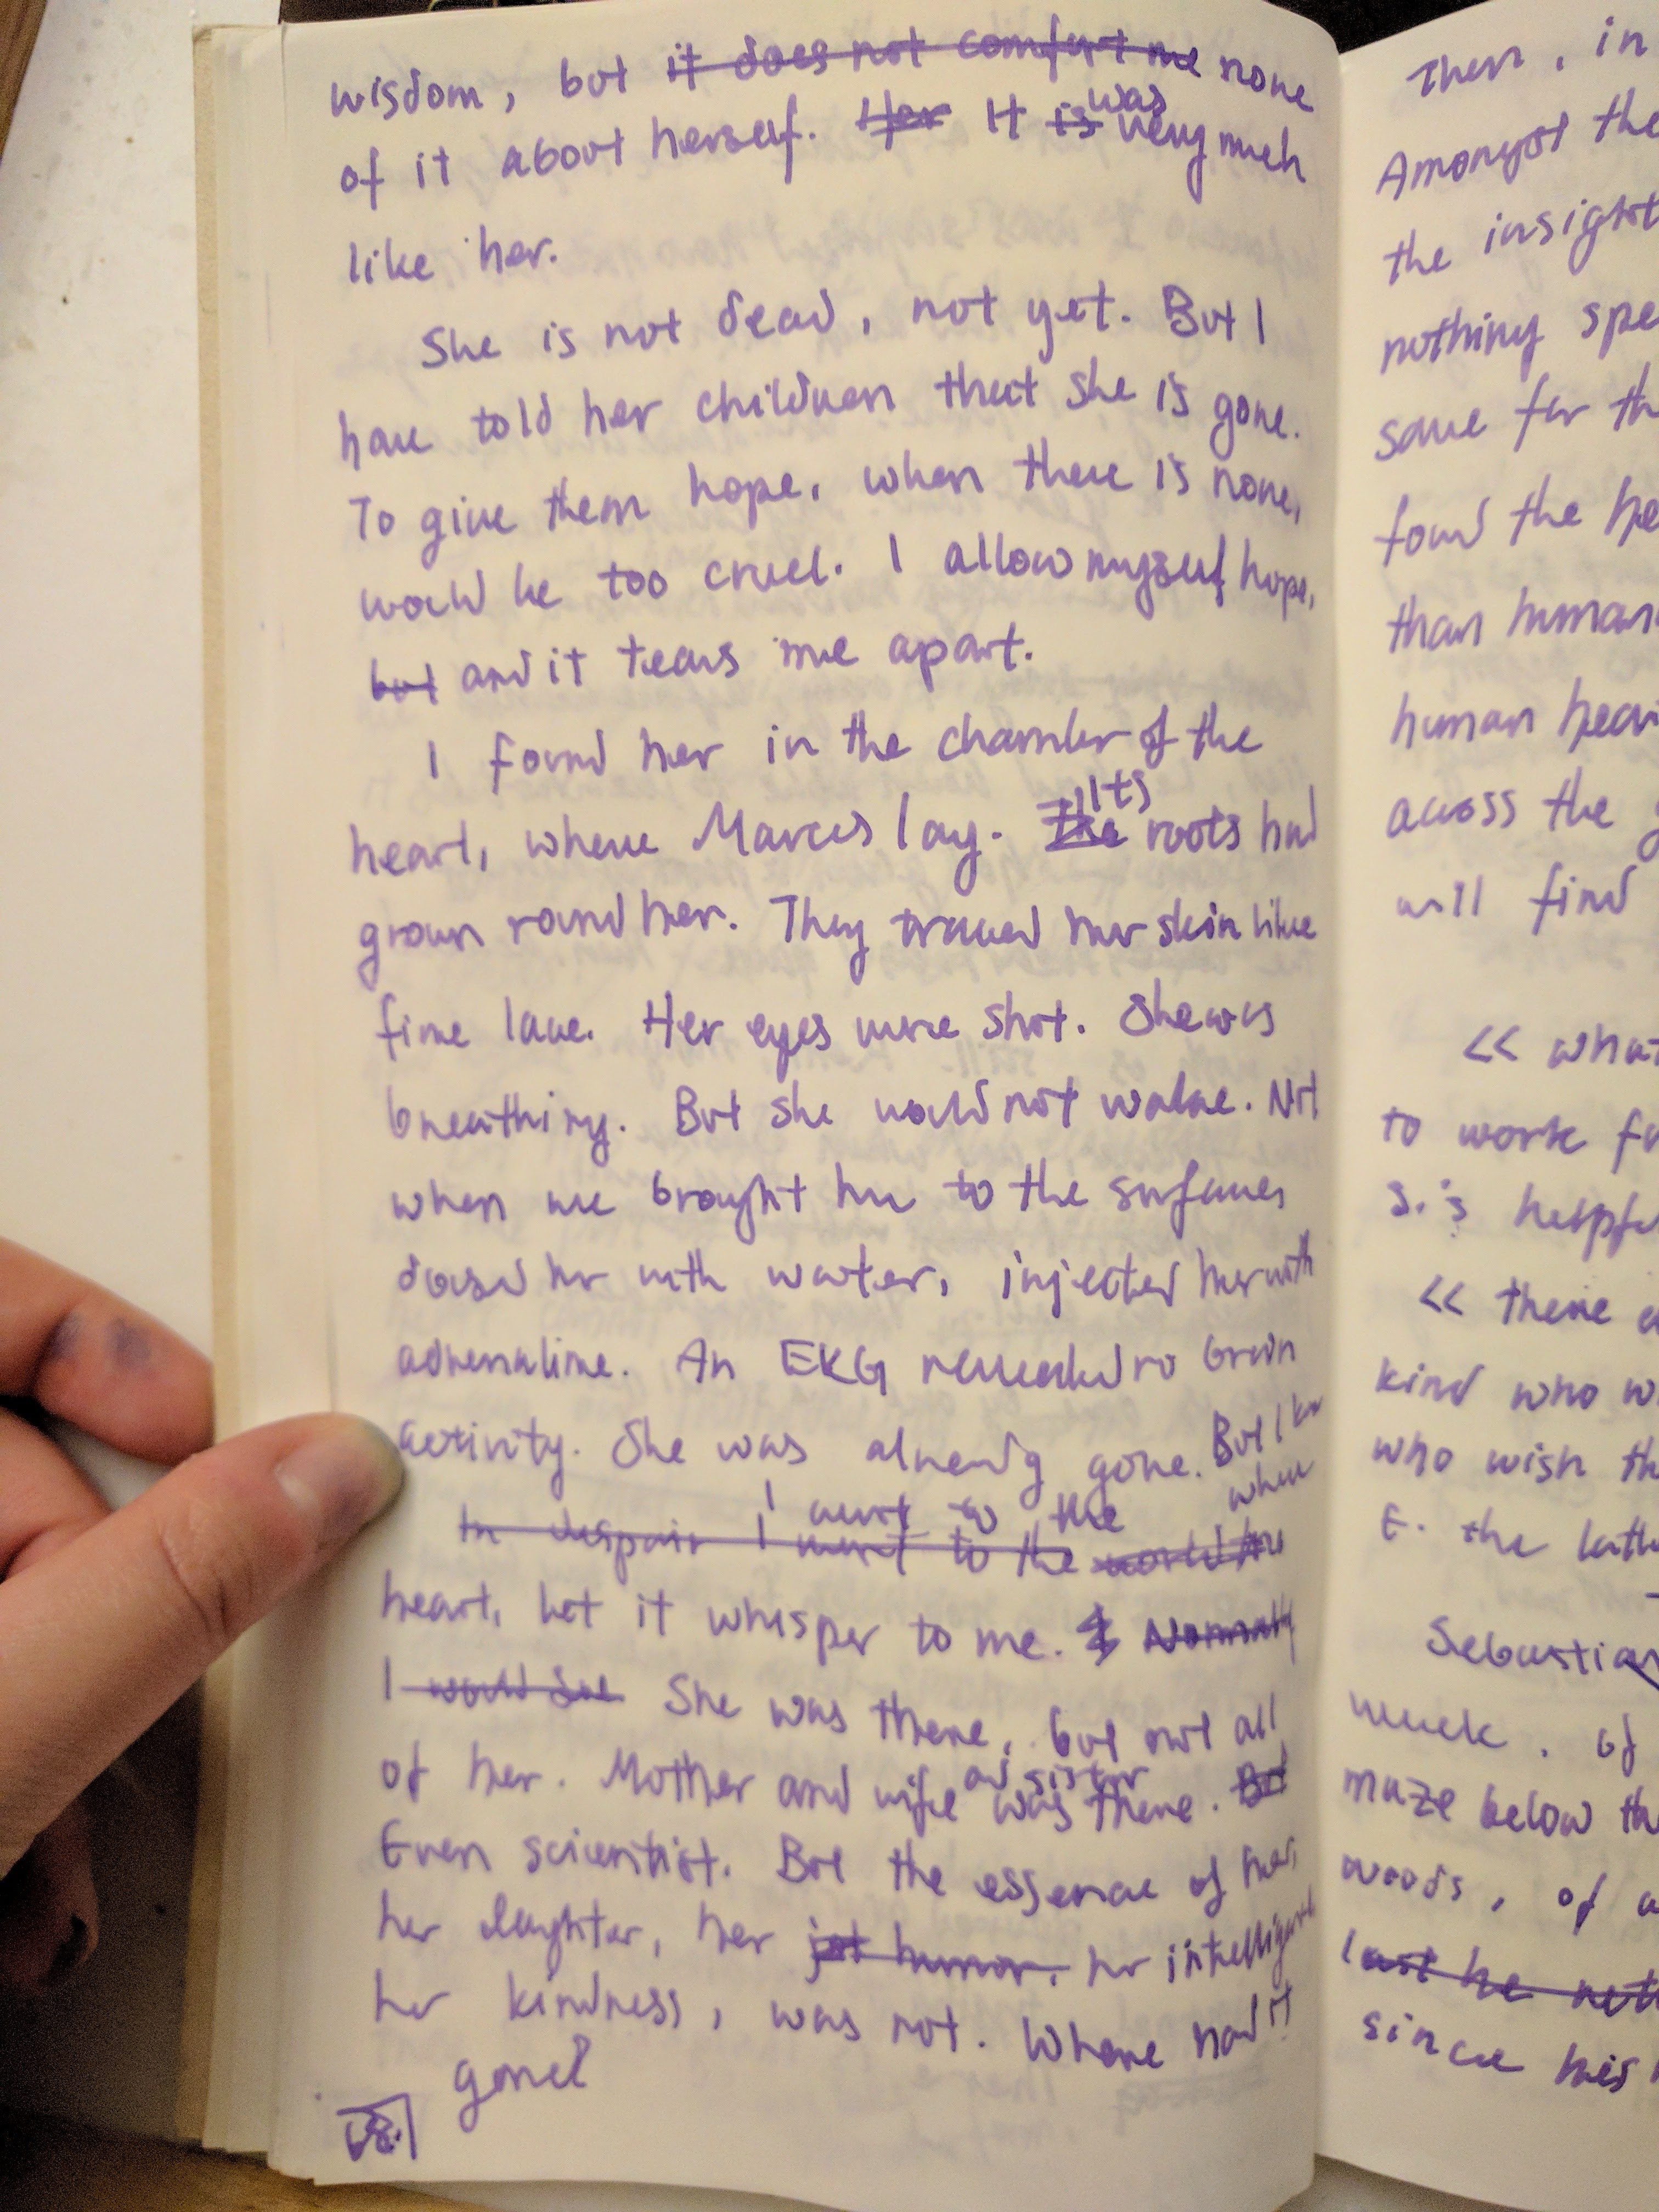 wisdom, but it does not comfort me none
of it about herself. Her It is was very much
like her.
She is not dead, not yet. But I
have told her children that she is gone.
To give them hope, when there is none,
would be too cruel. I allow myself hope,
but and it tears me apart.
I found her in the chamber of the
heart, where Marcus lay. The Its roots had
grown round her. They traced her skin like
fine lace. Her eyes were shut. She was
breathing. But she would not wake. Not
when we brought her to the surface,
dosed her with water, injected her with
adrenaline. An EKG revealed no brain
activity. She was already gone. But I know
where
I went to the
In despair I went to the would the
heart, let it whisper to me. I Normally
I would see She was there, but not all
of her. Mother and wife and sister was there. But
Even scientist. But the essence of her,
her laughter, her humor, her intelligence
her kindness, was not. Where had it
gone?
68.
Then, in
Amongst the
the insight
nothing spe
same for th
found the he
than human
human hear
across the g
will find
<< what
to work fo
S.'s helpfu
<< there a
kind who w
who wish th
E. the latte
Sebastian
week. of
maze below the
woods, of a
last he
since his